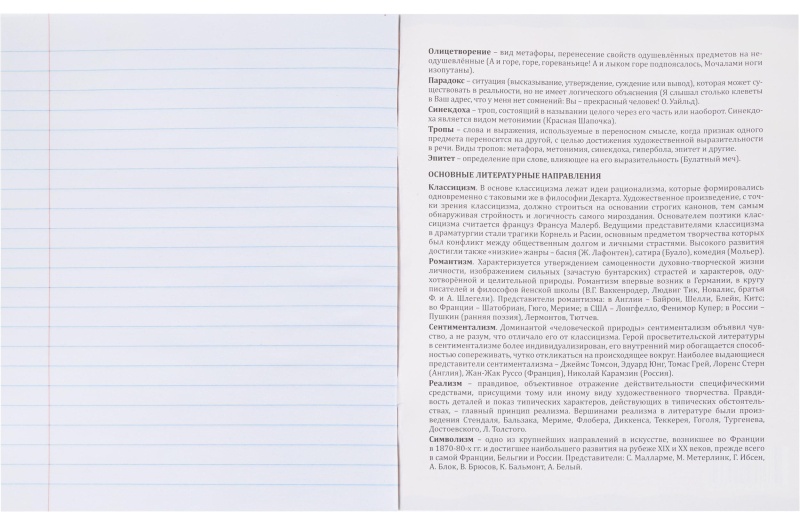 Олицетворение – вид метафоры, перенесение свойств одушевлённых предметов на не-
одушевлённые (А и горе, горе, гореваньице! А и лыком горе подпоясалось, Мочалами ноги
изопутаны).
Парадокс – ситуация (высказывание, утверждение, суждение или вывод), которая может су-
ществовать в реальности, но не имеет логического объяснения (Я слышал столько клеветы
в Ваш адрес, что у меня нет сомнений: Вы – прекрасный человек! О. Уайльд).
Синекдоха – троп, состоящий в назывании целого через его часть или наоборот. Синекдо-
ха является видом метонимии (Красная Шапочка).
Тропы – слова и выражения, используемые в переносном смысле, когда признак одного
предмета переносится на другой, с целью достижения художественной выразительности
в речи. Виды тропов: метафора, метонимия, синекдоха, гипербола, эпитет и другие.
Эпитет – определение при слове, влияющее на его выразительность (Булатный меч).
ОСНОВНЫЕ ЛИТЕРАТУРНЫЕ НАПРАВЛЕНИЯ
Классицизм. В основе классицизма лежат идеи рационализма, которые формировались
одновременно с таковыми же в философии Декарта. Художественное произведение, с точ-
ки зрения классицизма, должно строиться на основании строгих канонов, тем самым
обнаруживая стройность и логичность самого мироздания. Основателем поэтики клас-
сицизма считается француз Франсуа Малерб. Ведущими представителями классицизма
в драматургии стали трагики Корнель и Расин, основным предметом творчества которых
был конфликт между общественным долгом и личными страстями. Высокого развития
достигли также «низкие» жанры – басня (Ж. Лафонтен), сатира (Буало), комедия (Мольер).
Романтизм. Характеризуется утверждением самоценности духовно-творческой жизни
личности, изображением сильных (зачастую бунтарских) страстей и характеров, оду-
хотворённой и целительной природы. Романтизм впервые возник в Германии, в кругу
писателей и философов йенской школы (В.Г. Ваккенродер, Людвиг Тик, Новалис, братья
Ф. и А. Шлегели). Представители романтизма: в Англии – Байрон, Шелли, Блейк, Китс;
во Франции – Шатобриан, Гюго, Мериме; в США – Лонгфелло, Фенимор Купер; в России –
Пушкин (ранняя поэзия), Лермонтов, Тютчев.
Сентиментализм. Доминантой «человеческой природы» сентиментализм объявил чув-
ство, а не разум, что отличало его от классицизма. Герой просветительской литературы
в сентиментализме более индивидуализирован, его внутренний мир обогащается способ-
ностью сопереживать, чутко откликаться на происходящее вокруг. Наиболее выдающиеся
представители сентиментализма – Джеймс Томсон, Эдуард Юнг, Томас Грей, Лоренс Стерн
(Англия), Жан-Жак Руссо (Франция), Николай Карамзин (Россия).
Реализм – правдивое, объективное отражение действительности специфическими
средствами, присущими тому или иному виду художественного творчества. Правди-
вость деталей и показ типических характеров, действующих в типических обстоятель-
ствах, – главный принцип реализма. Вершинами реализма в литературе были произ-
ведения Стендаля, Бальзака, Мериме, Флобера, Диккенса, Теккерея, Гоголя, Тургенева,
Достоевского, Л. Толстого.
Символизм – одно из крупнейших направлений в искусстве, возникшее во Франции
в 1870-80-х гг. и достигшее наибольшего развития на рубеже XIX и XX веков, прежде всего
в самой Франции, Бельгии и России. Представители: С. Малларме, М. Метерлинк, Г. Ибсен,
А. Блок, В. Брюсов, К. Бальмонт, А. Белый.